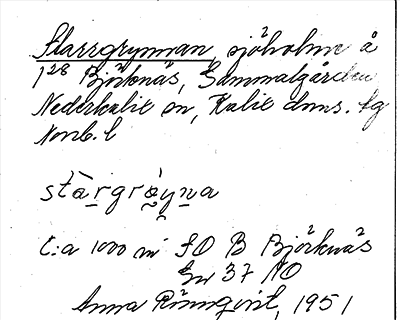 Starrgrynnan, sjöholme å
1²⁸ Björknäs, Gammalgården
Nederkalix sn, Kalix dnms. tg
Nonb. l
stàrgrøyna
C:a 1000 m SO B Björknäs
Gw 37 NO
Anna Rönnqvist, 1951